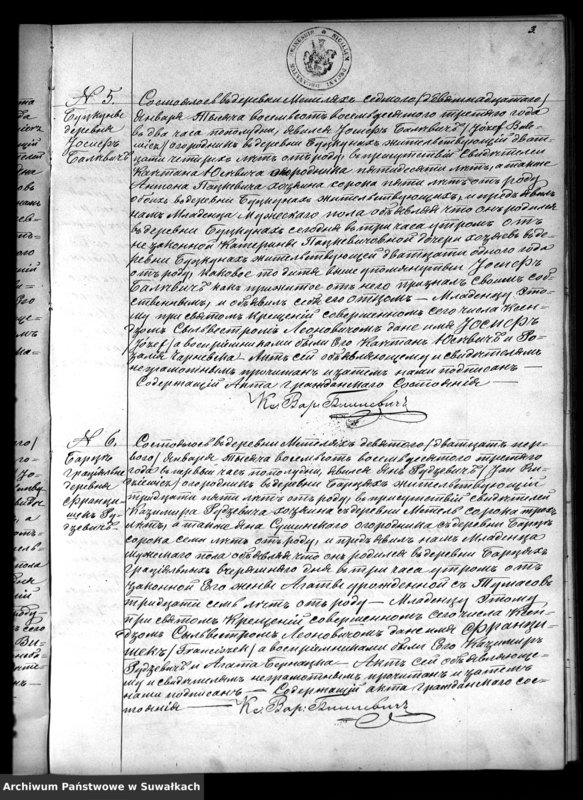 3.
N 5.
Буцкуне
деревня
Іосифъ
Балквичъ
Состоялось въ деревни Метеляхъ седьмого /девятнадцатаго/
Января Тысяча восемьсотъ восемьдесятъ третяго года
въ два часа пополудни, явился Іосифъ Балквичъ /Józef
огородникъ въ деревни Буцкунахъ жительствующій двад-
цати четырехъ лѣтъ отъ роду, въ присутствіи свидетелей
Каетана Юсквича огородника пятидесяти лѣтъ, а также
Антона Пацкевича хозяина сорока пяти лѣтъ отъ роду
обоихъ въ деревни Буцкунахъ жительствующихъ, и предъявилъ
намъ Младенца Мужескаго пола объявляя что онъ родился
въ деревни Буцкунахъ сегодня въ три часа утромъ отъ
незаконной Катерины Пацкевичовной дочери хозяевъ въ де-
ревни Буцкунахъ жительствующей двадцати одного года
отъ роду, каковое то дитя вышеупомянутый Іосифъ
Балквичъ какъ прижитое отъ него призналъ своимъ соб-
ственнымъ, и объявилъ себя его отцомъ — Младенцу Это-
му при святомъ Крещеніи совершенномъ сего числа Ксен-
дзомъ Сильвестромъ Леоновичомъ дано имя Іосифъ
/Józef/ а воспріемниками были Его Каетанъ Юсквичъ и Ро-
залія Чарнецка — Актъ сей объявляющему и свидетелямъ
неграмотнымъ прочитанъ и затемъ нами подписанъ —
Содержащій Акта гражданскаго Состоянія —
Кс. Вар:
N 6.
Барцѣ
граціялне
деревня
Франци-
шекъ Ру-
дзевичъ
Состоялось въ деревни Метеляхъ девятого /двадцать пер-
вого/ Января Тысяча восемьсотъ восемьдесятъ третяго
года въ первый часъ пополудни, явился Янъ Рудзевичъ /Jan
огородникъ въ деревни Барцяхъ жительствующій
тридцати пяти лѣтъ отъ роду въ присутствіи свидетелей
Казимира Рудзевича хозяина съ деревни Метель сорока трехъ
лѣтъ, а также Яна Сушинскаго огородника съ деревни Барце
сорока семи лѣтъ отъ роду, и предъявилъ намъ Младенца
мужескаго пола объявляя что онъ родился въ деревни Барцяхъ
Граціялныхъ вчерашняго дня въ три часа утромъ отъ
законной Его жены Агаты урожденной съ Тумасовъ
тридцати семь лѣтъ отъ роду — Младенцу Этому
при святомъ Крещеніи совершенномъ сего числа Ксен-
дзомъ Сильвестромъ Леоновичомъ дано имя Франци-
шекъ /Franciszek/ а воспріемниками были Его Казимиръ
Рудзевичъ и Агата Бернацка — Актъ сей объявляюще-
му и свидетелямъ неграмотнымъ прочитанъ и затемъ
нами подписанъ — Содержащій акта гражданскаго сос-
тоянія — Кс. Вар:
Archiwum Państwowe w Suwałkach